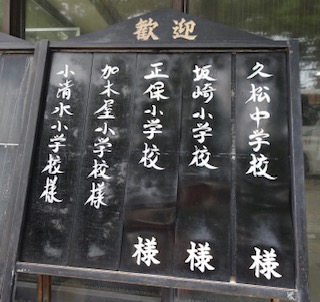 歓迎
久松中学校 様
坂崎小学校 様
正保小学校 様
加木屋小学校様
小清水小学校様